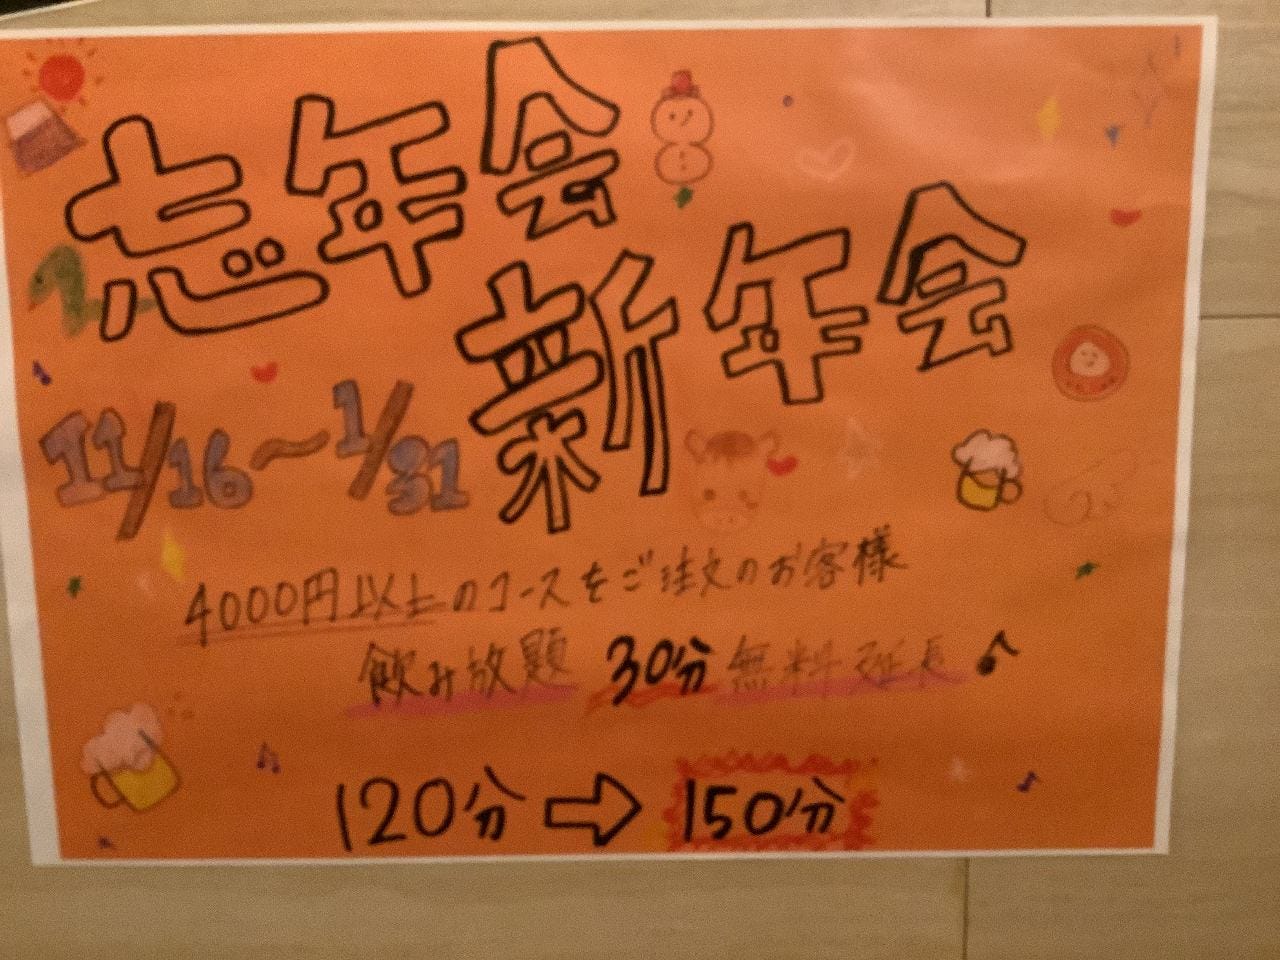 忘年会
新年会
11/16～1/31
4000円以上のコースをご注文のお客様
飲み放題 30分無料延長♪
120分⇨150分